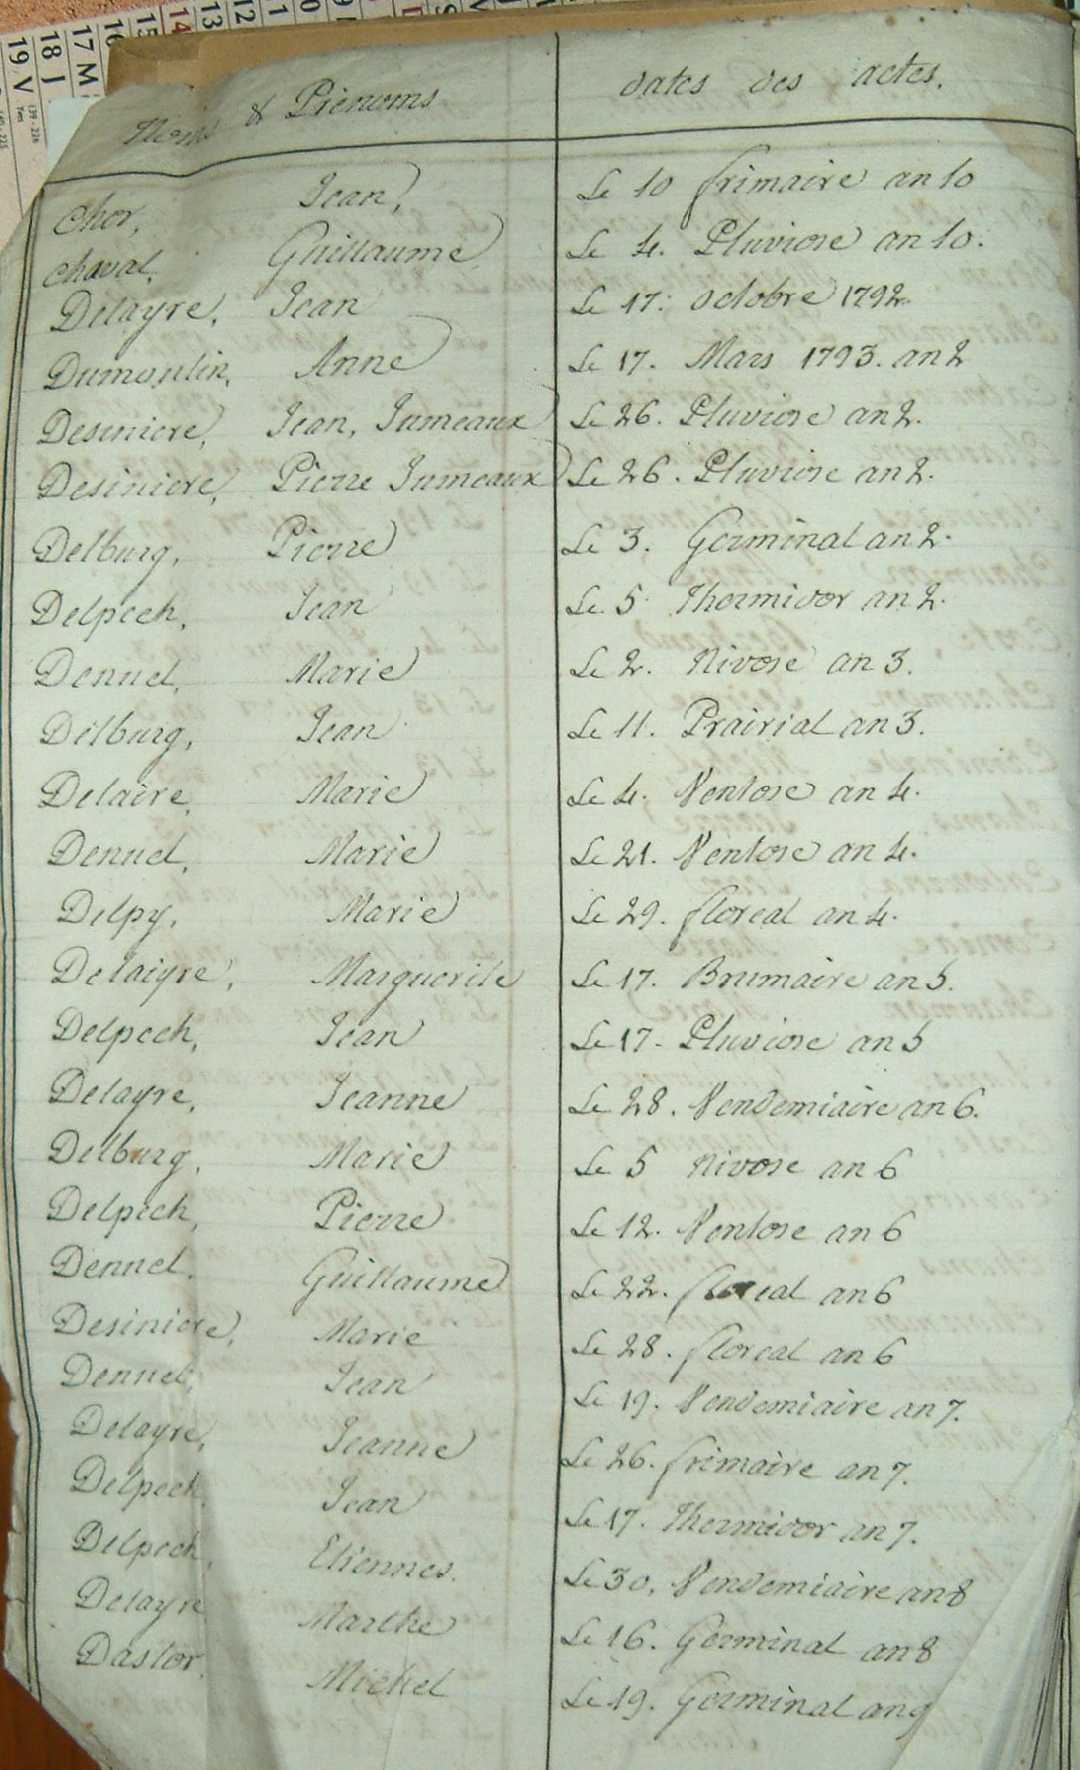 Noms & Prénoms dates des actes.
Chor, Jean, Le 10 frimaire an 10
Chaval, Guillaume Le 4. Pluviose an 10.
Delayre, Jean Le 17. octobre 1792.
Dumoulin, Anne Le 17. Mars 1793. an 2
Desiniere, Jean, Jumeaux Le 26. Pluviose an 2.
Desiniere, Pierre Jumeaux Le 26. Pluviose an 2.
Delburg, Pierre Le 3. Germinal an 2.
Delpech, Jean Le 5. Thermidor an 2.
Denuel, Marie Le 2. Nivose an 3.
Delburg, Jean Le 11. Prairial an 3.
Delaire, Marie Le 4. Ventose an 4.
Denuel, Marie Le 21. Ventose an 4.
Delpy, Marie Le 29. floreal an 4.
Delaigre, Marguerite Le 17. Brumaire an 5.
Delpech, Jean Le 17. Pluviose an 5
Delayre, Jeanne Le 28. Vendemiaire an 6.
Delburg, Marie Le 5 Nivose an 6
Delpech, Pierre Le 12. Ventose an 6
Denuel. Guillaume Le 22. floreal an 6
Desiniere, Marie Le 28. floreal an 6
Denuel, Jean Le 19. Vendemiaire an 7.
Delayre, Jeanne Le 26. frimaire an 7.
Delpech, Jean Le 17. Thermidor an 7.
Delpech, Etiennes. Le 30. Vendemiaire an 8
Delayre Marthe Le 16. Germinal an 8
Dastor. Michel Le 19. Germinal an 9